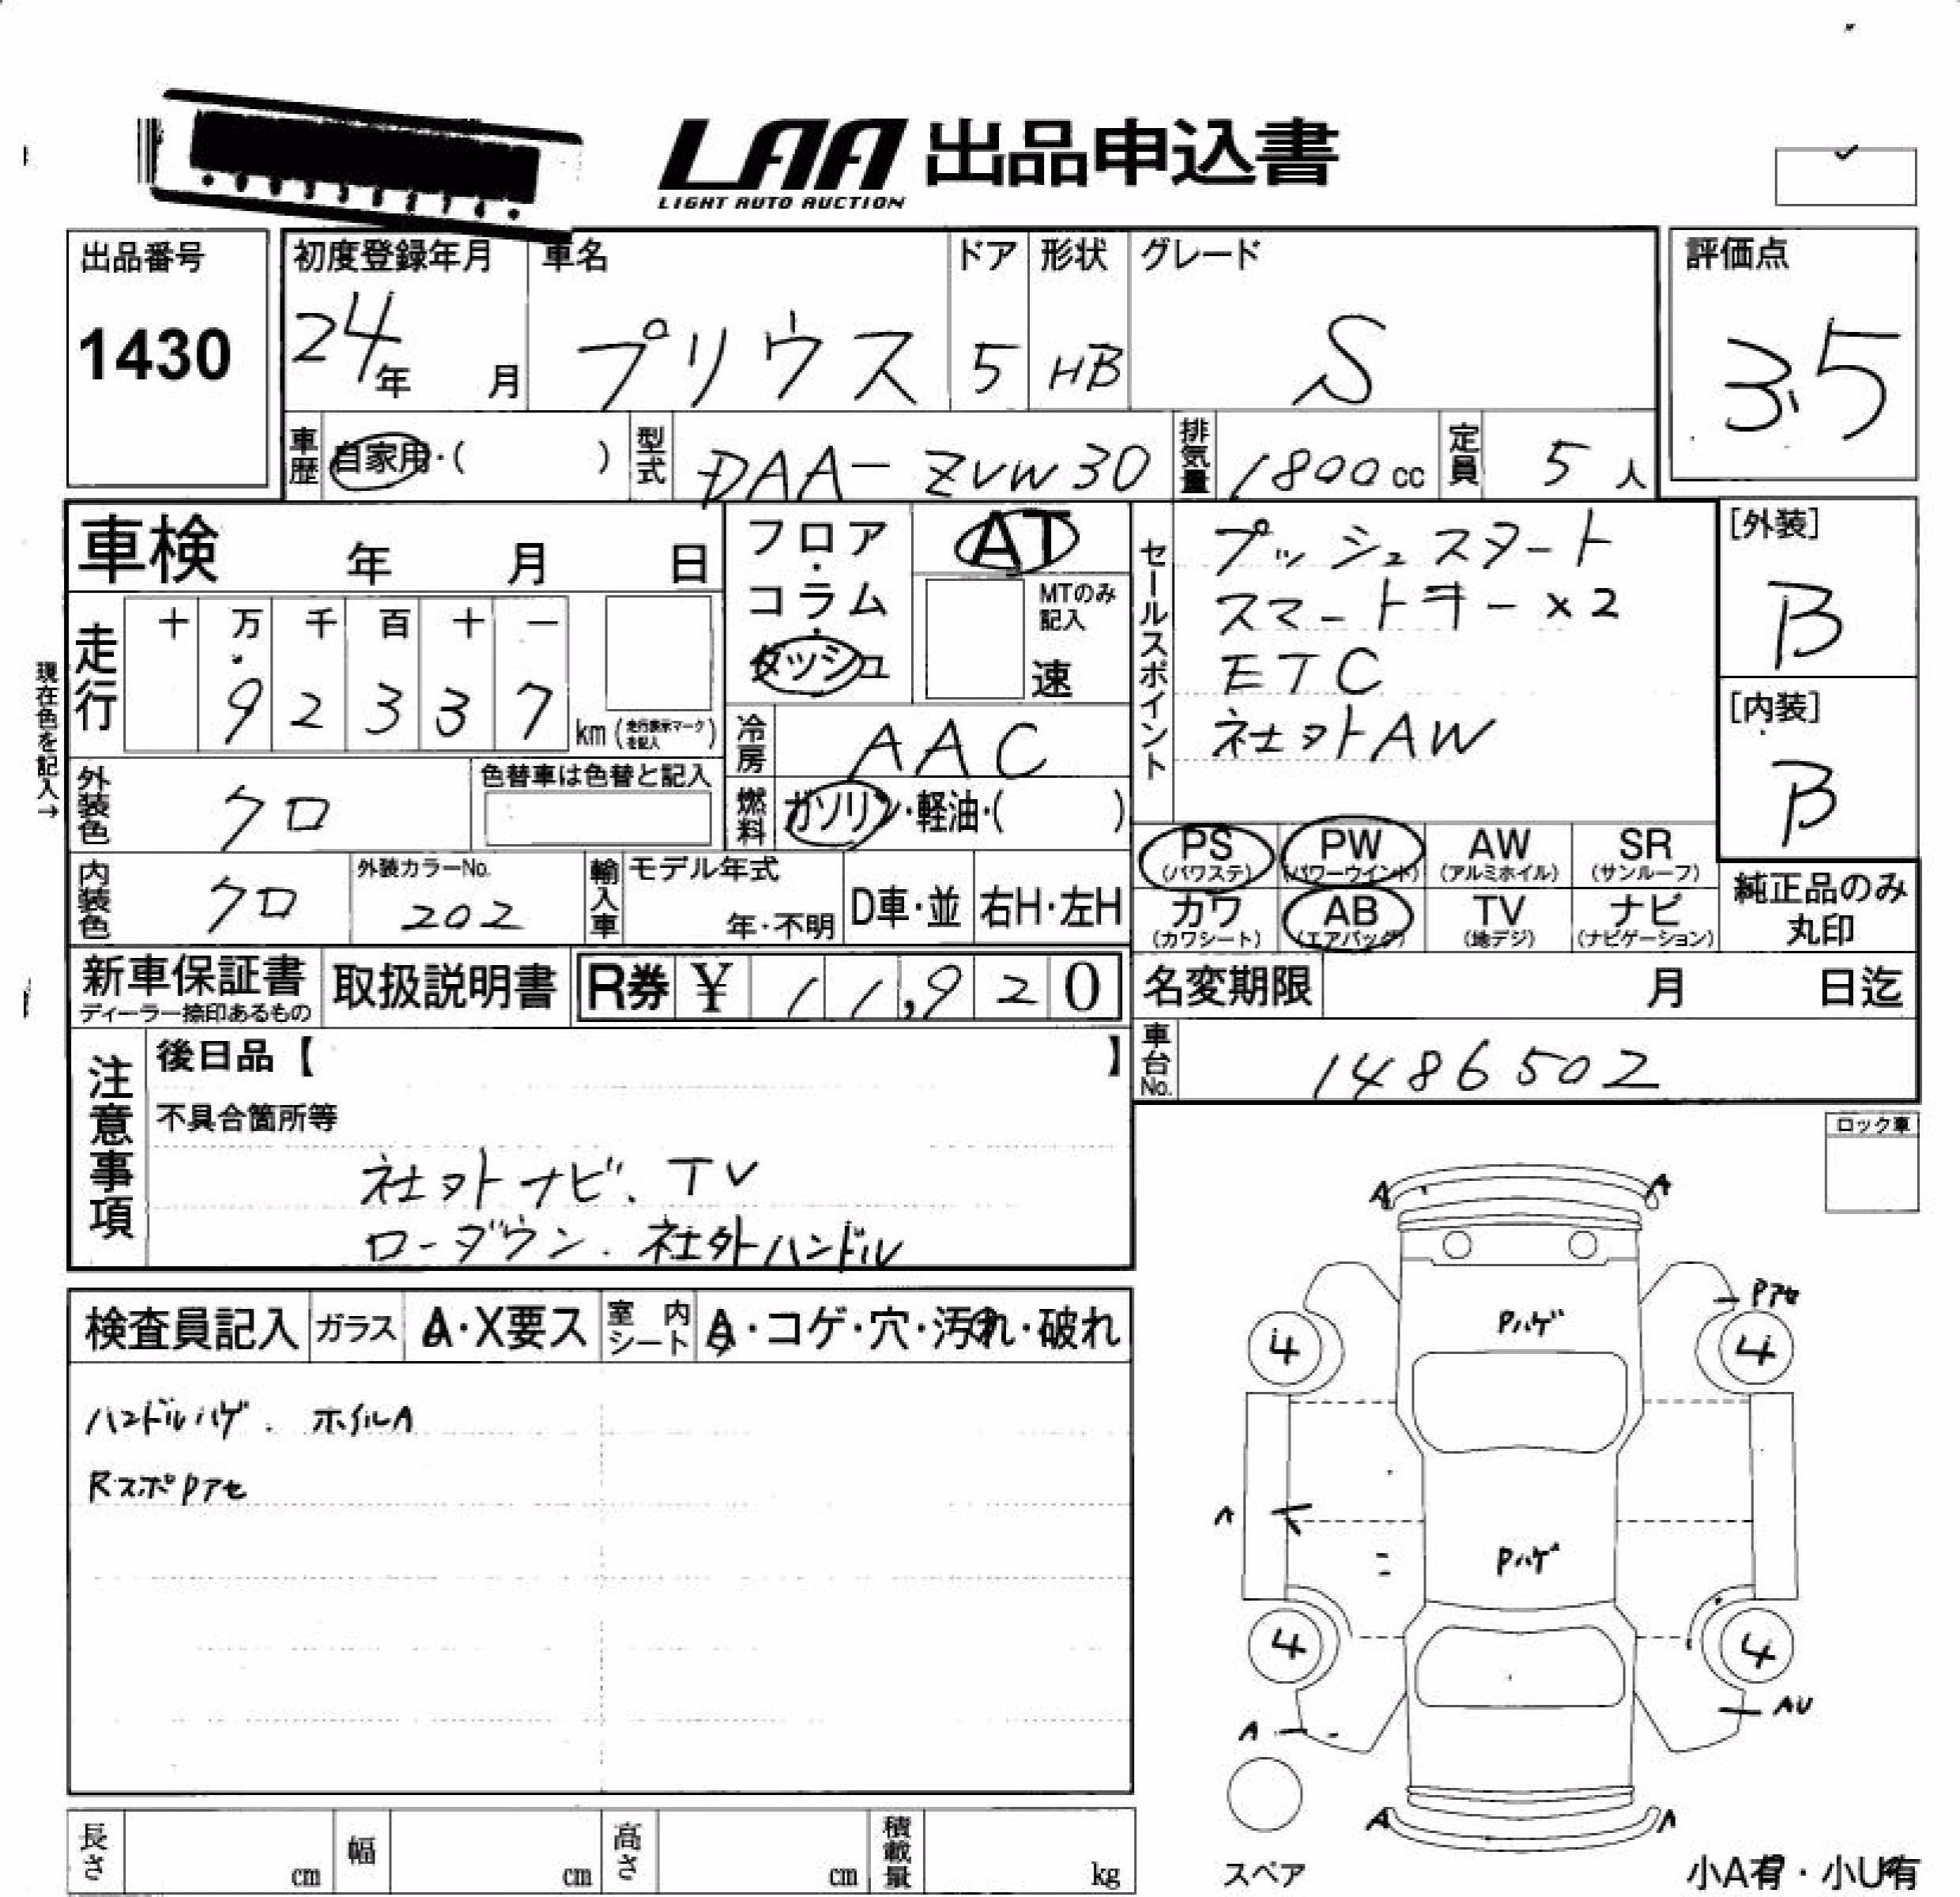 LAA 出品申込書
LIGHT AUTO AUCTION
出品番号
1430
初度登録年月
24年 月
車名
プリウス
ドア
5
形状
HB
グレード
S
評価点
3.5
車歴 自家用・( )
型式 DAA-ZVW30
排気量 1800cc
定員 5人
車検 年 月 日
走行
十 万 千 百 十 一
9 2 3 3 7
km(走行表示マークを記入)
現在色を記入→
外装色 クロ
色替車は色替と記入
内装色 クロ
外装カラーNo.
202
フロア・コラム・ダッシュ
AT
MTのみ記入
速
冷房 AAC
燃料 ガソリン・軽油・( )
輸入車
モデル年式
年・不明
D車・並
右H・左H
セールスポイント
プッシュスタート
スマートキー×2
ETC
社外AW
[外装]
B
[内装]
B
PS (パワステ)
PW (パワーウインド)
AW (アルミホイル)
SR (サンルーフ)
カワ (カワシート)
AB (エアバッグ)
TV (地デジ)
ナビ (ナビゲーション)
純正品のみ
丸印
新車保証書
ディーラー捺印あるもの
取扱説明書
R券 ¥ 11,920
名変期限 月 日迄
車台No. 1486502
注意事項
後日品【 】
不具合箇所等
社外ナビ、TV
ローダウン. 社外ハンドル
ロック車
検査員記入
ガラス A・X要ス
室内シート A・コゲ・穴・汚れ・破れ
ハンドルハゲ. ホイルA
RスポPアセ
A A
Pハゲ
Pアセ
4 4
A
Pハゲ
4 4
A
AU
A A
スペア
小A有・小U有
長さ cm
幅 cm
高さ cm
積載量 kg